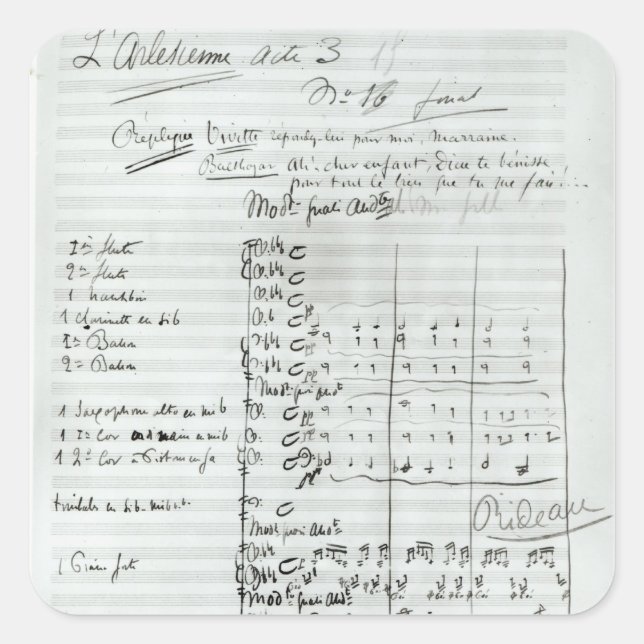 L'Arlesienne acte 3 15
No 16 final
Réplique Vivette répondez-lui pour moi, marraine.
Balthazar Ah! cher enfant, Dieu te bénisse
pour tout le bien que tu me fais!...
Modto quasi Andte
1ère flute
2e flute
1 hautbois
1 clarinette en sib
1er Basson
2e Basson
Modto quasi Andte
1 Saxophone alto en mib
1 1er Cor main en mib
1 2e Cor à Pistons en fa
timbales en sib
Rideau
Modto quasi Andte
1 Piano forte
Modto quasi Andte